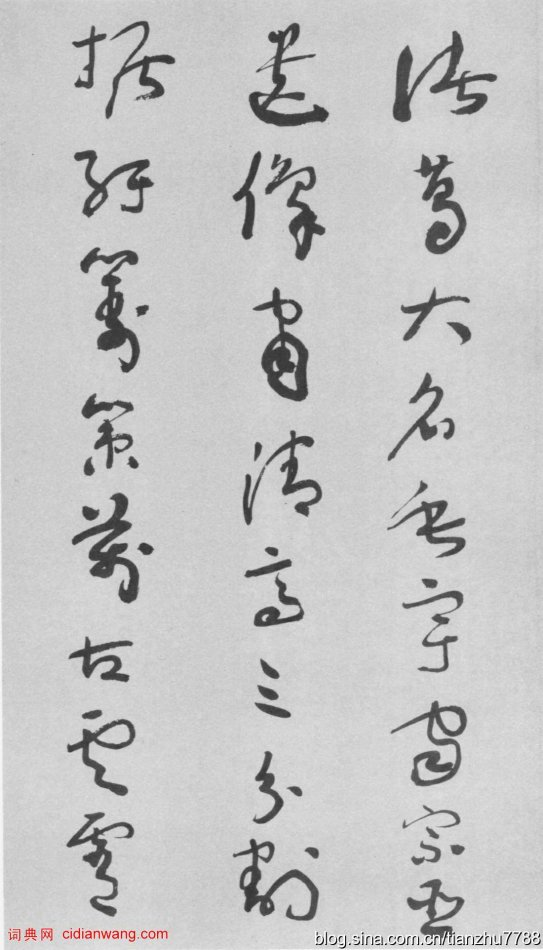 諸葛大名垂宇宙宗臣
遺像肅清高三分割
据紆籌策萬古雲霄
词典网 cidianwang.com
blog.sina.com.cn/tianzhu7788